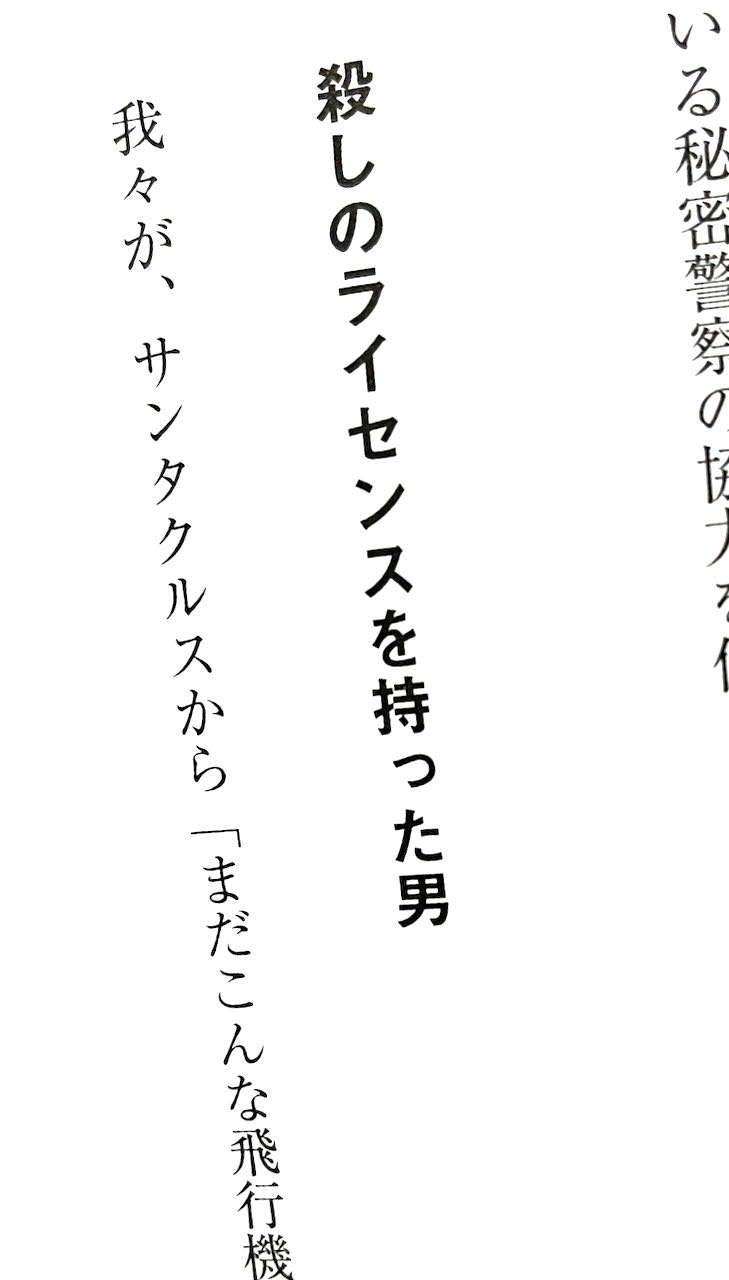 いる秘密警察の協力を
殺しのライセンスを持った男
我々が、サンタクルスから「まだこんな飛行機